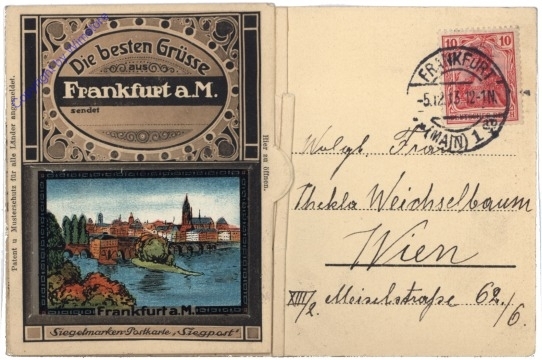 Die besten Grüsse
aus
Frankfurt a.M.
sendet
Frankfurt a.M.
Siegelmarken-Postkarte „Siegpost“
Patent u. Musterschutz für alle Länder angemeldet.
Hier zu öffnen.
10 10
FRANKFURT
-5.12.13.12-1N
(MAIN) 1
Wolgb. Frau
Thekla Weichselbaum
Wien
XIII/2. Meiselstraße 62./6.